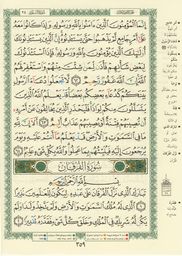 إِنَّمَا الْمُؤْمِنُونَ الَّذِينَ آمَنُوا بِاللَّهِ وَرَسُولِهِ وَإِذَا كَانُوا مَعَهُ
عَلَىٰ أَمْرٍ جَامِعٍ لَّمْ يَذْهَبُوا حَتَّىٰ يَسْتَأْذِنُوهُ إِنَّ الَّذِينَ يَسْتَأْذِنُونَكَ
أُولَٰئِكَ الَّذِينَ يُؤْمِنُونَ بِاللَّهِ وَرَسُولِهِ فَإِذَا اسْتَأْذَنُوكَ
لِبَعْضِ شَأْنِهِمْ فَأْذَن لِّمَن شِئْتَ مِنْهُمْ وَاسْتَغْفِرْ لَهُمُ
اللَّهَ إِنَّ اللَّهَ غَفُورٌ رَّحِيمٌ لَّا تَجْعَلُوا دُعَاءَ الرَّسُولِ
بَيْنَكُمْ كَدُعَاءِ بَعْضِكُم بَعْضًا قَدْ يَعْلَمُ اللَّهُ الَّذِينَ
يَتَسَلَّلُونَ مِنكُمْ لِوَاذًا فَلْيَحْذَرِ الَّذِينَ يُخَالِفُونَ عَنْ أَمْرِهِ
أَن تُصِيبَهُمْ فِتْنَةٌ أَوْ يُصِيبَهُمْ عَذَابٌ أَلِيمٌ أَلَا إِنَّ لِلَّهِ
مَا فِي السَّمَاوَاتِ وَالْأَرْضِ قَدْ يَعْلَمُ مَا أَنتُمْ عَلَيْهِ وَيَوْمَ
يُرْجَعُونَ إِلَيْهِ فَيُنَبِّئُهُم بِمَا عَمِلُوا وَاللَّهُ بِكُلِّ شَيْءٍ عَلِيمٌ
سُورَةُ الْفُرْقَانِ
بِسْمِ اللَّهِ الرَّحْمَٰنِ الرَّحِيمِ
تَبَارَكَ الَّذِي نَزَّلَ الْفُرْقَانَ عَلَىٰ عَبْدِهِ لِيَكُونَ لِلْعَالَمِينَ نَذِيرًا
الَّذِي لَهُ مُلْكُ السَّمَاوَاتِ وَالْأَرْضِ وَلَمْ يَتَّخِذْ وَلَدًا وَلَمْ
يَكُن لَّهُ شَرِيكٌ فِي الْمُلْكِ وَخَلَقَ كُلَّ شَيْءٍ فَقَدَّرَهُ تَقْدِيرًا
٣٥٩